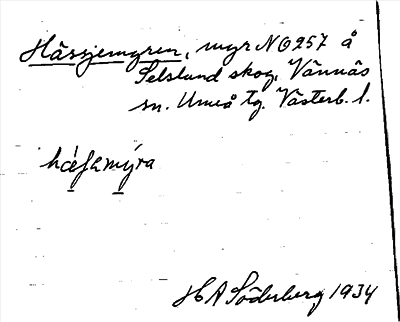 Hässjemyren, myr NO 257 å
Selslund skog, Vännäs
sn. Umeå tg. Västerb. l.
hæ̀ʃamýra
H A Söderberg 1934